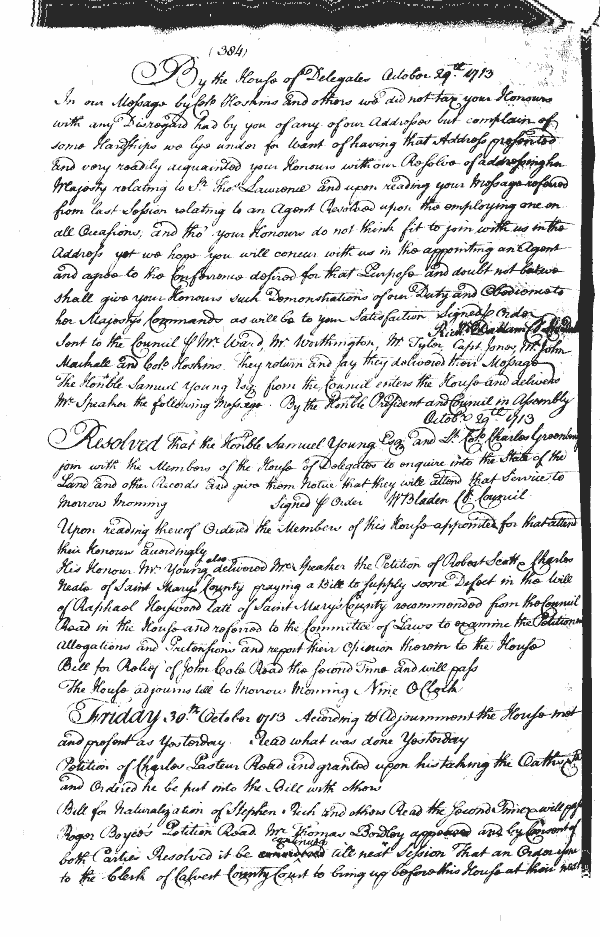 (384)
By the House of Delegates October 29th. 1713
In our Message by Colo. Hoskins and others we did not tax your Honours
with any Disregard had by you of any of our Addresses but complain of
some Hardships we lye under for Want of having that Address presented
and very readily acquainted your Honours with our Resolve of addressing her
Majesty relating to Sr. Thos. Lawrence and upon reading your Message referred
from last Session relating to an Agent Resolved upon the employing one on
all Occasions, and tho' your Honours do not think fit to join with us in the
Address yet we hope you will concur with us in the appointing an Agent
and agree to the Conference desired for that Purpose and doubt not but we
shall give your Honours such Demonstrations of our Duty and Obedience to
her Majestys Commands as will be to your Satisfaction Signed p Order
Richd. Dallam Cl
Sent to the Council p Mr. Ward, Mr. Worthington, Mr. Tyler Capt. Jones, Mr. John
Mackall and Colo. Hoskins. They return and say they delivered their Message
The Honble Samuel Young Esq. from the Council enters the House and delivers
Mr. Speaker the following Message. By the Honble President and Council in Assembly
Octobr. 29th. 1713
Resolved that the Honble Samuel Young Esq. and Lt. Colo. Charles Greenberry
join with the Members of the House of Delegates to enquire into the State of the
Land and other Records and give them Notice that they will attend that Service to
Morrow Morning Signed p Order W Bladen Cl. Council
Upon reading thereof Ordered the Members of this House appointed for that attend
their Honours accordingly
His Honour Mr. Young also delivered Mr. Speaker the Petition of Robert Scott & Charles
Neale of Saint Mary's County praying a Bill to supply some Defect in the Will
of Raphael Heywood late of Saint Mary's County recommended from the Council
Read in the House and referred to the Committee of Laws to examine the Petitioners
Allegations and Pretensions and report their Opinion thereon to the House
Bill for Relief of John Cole Read the Second Time and will pass
The House adjourns till to Morrow Morning Nine O Clock
Friday 30th. October 1713 According to Adjournment the House met
and present as Yesterday. Read what was done Yesterday
Petition of Charles Pasteur Read and granted upon his taking the Oaths
and Ordered he be put into the Bill with others
Bill for Naturalization of Stephen Rich and others Read the Second Time & will pass
Roger Boyce's Petition Read Mr. Thomas Bordley appeared and by Consent of
both Parties Resolved it be continued till next Session That an Order
to the Clerk of Calvert County Court to bring up before this House at their next